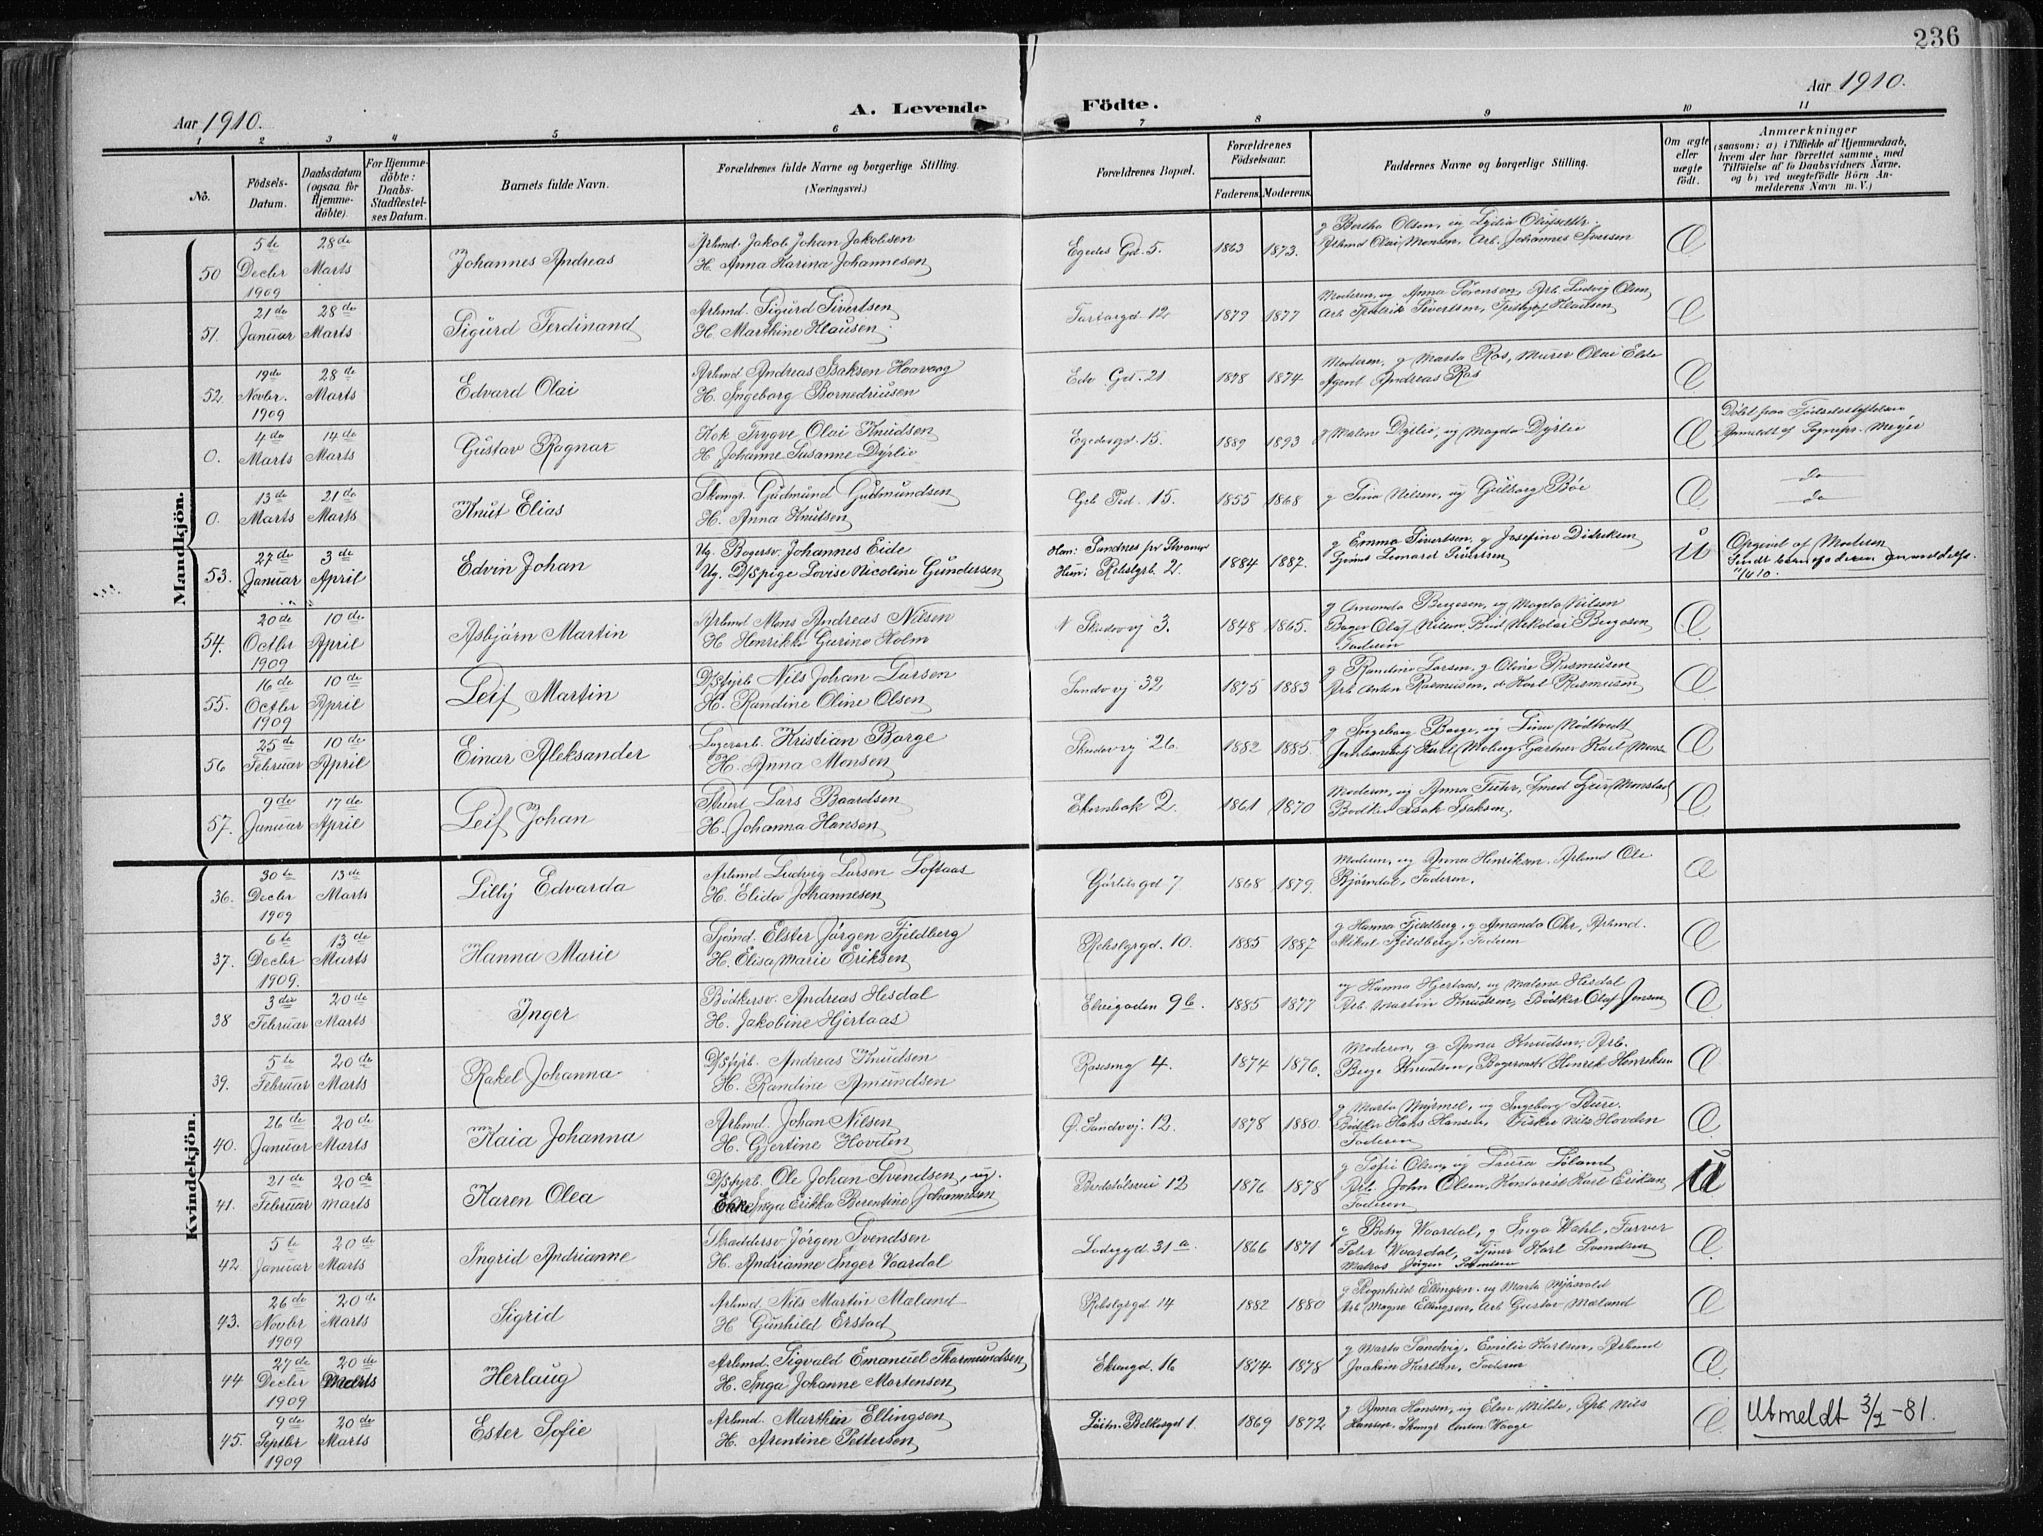 236
Aar 1910.
A. Levende Födte.
Aar 1910.
1 2 3 4 5 6 7 8 9 10 11
No.
Födsels-
Datum.
Daabsdatum
(ogsaa for
Hjemme-
döbte).
For Hjemme-
döbte:
Daabs-
Stadfæstel-
ses Datum.
Barnets fulde Navn.
Forældrenes fulde Navne og borgerlige Stilling.
(Næringsvei.)
Forældrenes Bopæl.
Forældrenes
Födselsaar.
Faderens. Moderens.
Faddernes Navne og borgerlige Stilling.
Om ægte
eller
uægte
födt.
Anmærkninger
(saasom: a) i Tilfælde af Hjemmedaab,
hvem der har forrettet samme, med
Tilföielse af to Daabsvidners Navne,
og b) ved uægtefödte Börn An-
melderens Navn m. V.)
Mandkjön.
50 5te Decbr 1909 28de Marts Johannes Andreas
Arbmd. Jakob Johan Jakobsen
H. Anna Karina Johannesen
Egedes Gd. 5. 1863 1873.
g Bertha Olsen, ug Lydia Olufsettr.
Arbmd Olai Monsen, Arb. Johannes Iversen
Æ
51. 21de Januar 28de Marts Sigurd Ferdinand
Arbmd. Sigurd Sivertsen
H. Marthine Klausen
Tartargd. 12 1879 1877
Moderen, ug Anna Sørensen, Arb. Ludvig Olsen
Arb. Fredrik Sivertsen, Fridtjof Klausen
Æ
52 19de Novbr. 1909 28de Marts Edvard Olai
Arbmd Andreas Isaksen Haavaag
H. Ingeborg Bornedriusen
Edv Gd. 21 1878 1874
Moderen, g Marta Ros, Murer Olai Elde
Agent Andreas Ros
Æ
0. 4de Marts 14de Marts Gustav Ragnar
Kok Trygve Olai Knudsen
H Johanne Susanne Dyrlie
Egedesgd. 15. 1889 1893
g Malene Dyrlie, ug Magda Dyrlie
Æ
Døbt paa Fødselsstiftelsen
Anmeldt af Sognepr. Meyer
0. 13de Marts 21de Marts Knut Elias
Skomgr. Gudmund Gudmundsen
H. Anna Knutsen
Geb Ped. 15. 1855 1868
g Tina Nilsen, ug Gulborg Bøe
Æ
do
do
53. 27de Januar 3de April Edvin Johan
Ug. Bagersv. Johannes Eide
Ug. D/Spige Lovise Nicoline Gundersen
Han: Sandnes pr Stvanger
Hun: Rebslgrb. 2. 1884 1887.
g Emma Sivertsen, g Josefine Didriksen
Sjømd Lenard Sivertsen
U
Opgivet af Moderen
Sendt barnefaderen anmeldelse
11/4 10.
54. 20de Octbr 1909 10de April Asbjørn Martin
Arbmd Mons Andreas Nilsen
H Henrikke Gurine Holm
N Skudevj 3. 1848 1865.
g Amanda Bergesen, ug Magda Nilsen
Bager Olaf Nilsen, Bud Nikolai Bergesen
Faderen
Æ
55. 16de Octbr 1909 10de April Leif Martin
D/Sfyrb Nils Johan Larsen
H. Randine Oline Olsen
Sandvj 32 1875 1883
g Randine Larsen, g Oline Rasmusen
Arb. Anton Rasmusen, do Karl Rasmusen
Æ
56 25de Februar 10de April Einar Aleksander
Lagerarb. Kristian Borge
H. Anna Monsen
Skudevj 26. 1882 1885.
g Ingeborg Borge, ug Lina Nødtvedt
Karl Moberg, Gartner Karl Mons
Æ
57. 9de Januar 17de April Leif Johan
Stuert Lars Baardsen
H. Johanna Hansen
Ekernbak 2. 1861 1870
Moderen, ug Anna Fuhr, Smed Geir Monstad
Bødker Isak Isaksen
Æ
Kvindekjön.
36. 30te Decbr 1909 13de Marts Lilly Edvarda
Arbmd Ludvig Larsen Loftaas
H. Elida Johannesen
Gørbitsgd 7 1868 1879.
Moderen, ug Anna Henriksen, Arbmd Ole
Bjørndal, Faderen.
Æ
37. 6te Decbr 1909. 13de Marts Hanna Marie
Sjømd. Elster Jørgen Fjeldberg
H. Elisa Marie Eriksen
Rebslgrgd. 10. 1885 1887
g Hanna Fjeldberg, g Amanda Ohr, Arbmd.
Mikal Fjeldberg, Faderen
Æ
38 3die Februar 20de Marts Inger
Bødkersv. Andreas Hesdal
H. Jakobine Hjertaas
Elvegaden 9b. 1885 1877
ug Hanna Hjertaas, ug Malene Hesdal
Arb. Martin Knudsen, Bødker Olaf Jensen
Æ
39. 5te Februar 20de Marts Rakel Johanna
D/Sfyrb. Andreas Knudsen
H. Randine Amundsen
Rosesmg 4. 1874 1876.
Moderen, g Anna Knudsen, Arb.
Berge Knudsen, Bagermstr Henrik Henriksen
Æ
40. 26de Januar 20de Marts Kaia Johanna
Arbmd. Johan Nilsen
H. Gjertine Hovden
Ø. Sandvj. 12. 1878 1880.
g Marta Myrmel, ug Ingeborg Sture.
Bødker Hans Hansen, Fisker Nils Hovden
Faderen
Æ
41. 21de Februar 20de Marts Karen Olea
D/Sfyrb. Ole Johan Svendsen, ug.
Enke Inga Erikka Berentine Johannesen
Brødstølsvei 12 1876 1878
g Sofie Olsen, ug Laura Søland
Arb. John Olsen, Kontorist Karl Eriksen
Faderen
U
42 5te Januar 20de Marts Ingrid Andrianne
Skræddersv. Jørgen Svendsen
H. Andrianne Inger Vaardal
Ladegd. 31a. 1866 1871
g Betzy Vaardal, g Inga Wahl, Farver
Peter Vaardal, Tjener Karl Svendsen
Matros Jörgen
Æ
43. 26de Novbr 1909 20de Marts Sigrid
Arbmd Nils Martin Mæland
H Gunhild Erstad
Rebslgrgd 14 1882 1880
g Ragnhild Ellingsen, ug Marta Mjøsvold
Arb Magne Ellingsen, Arb Gustav Mæland
Æ
44 27de Decbr 1909 20de Marts Herlaug
Arbmd. Sigvald Emanuel Thormundsen
H. Inga Johanne Mortensen
Ekrengd. 16 1874 1878
g Marta Sandvig, Emilie Karlsen, Arbmd
Joakim Karlsen, Faderen
Æ
45. 9de Septbr 1909 20de Marts Ester Sofie
Arbmd. Marthin Ellingsen
H. Arentine Pettersen
Løitn Bekkesgd 1 1869 1872
g Anna Hansen, ug Elen Milde, Arb. Nils
Hansen, Skomgr Anton Vaage
Æ
Utmeldt 3/2-81.